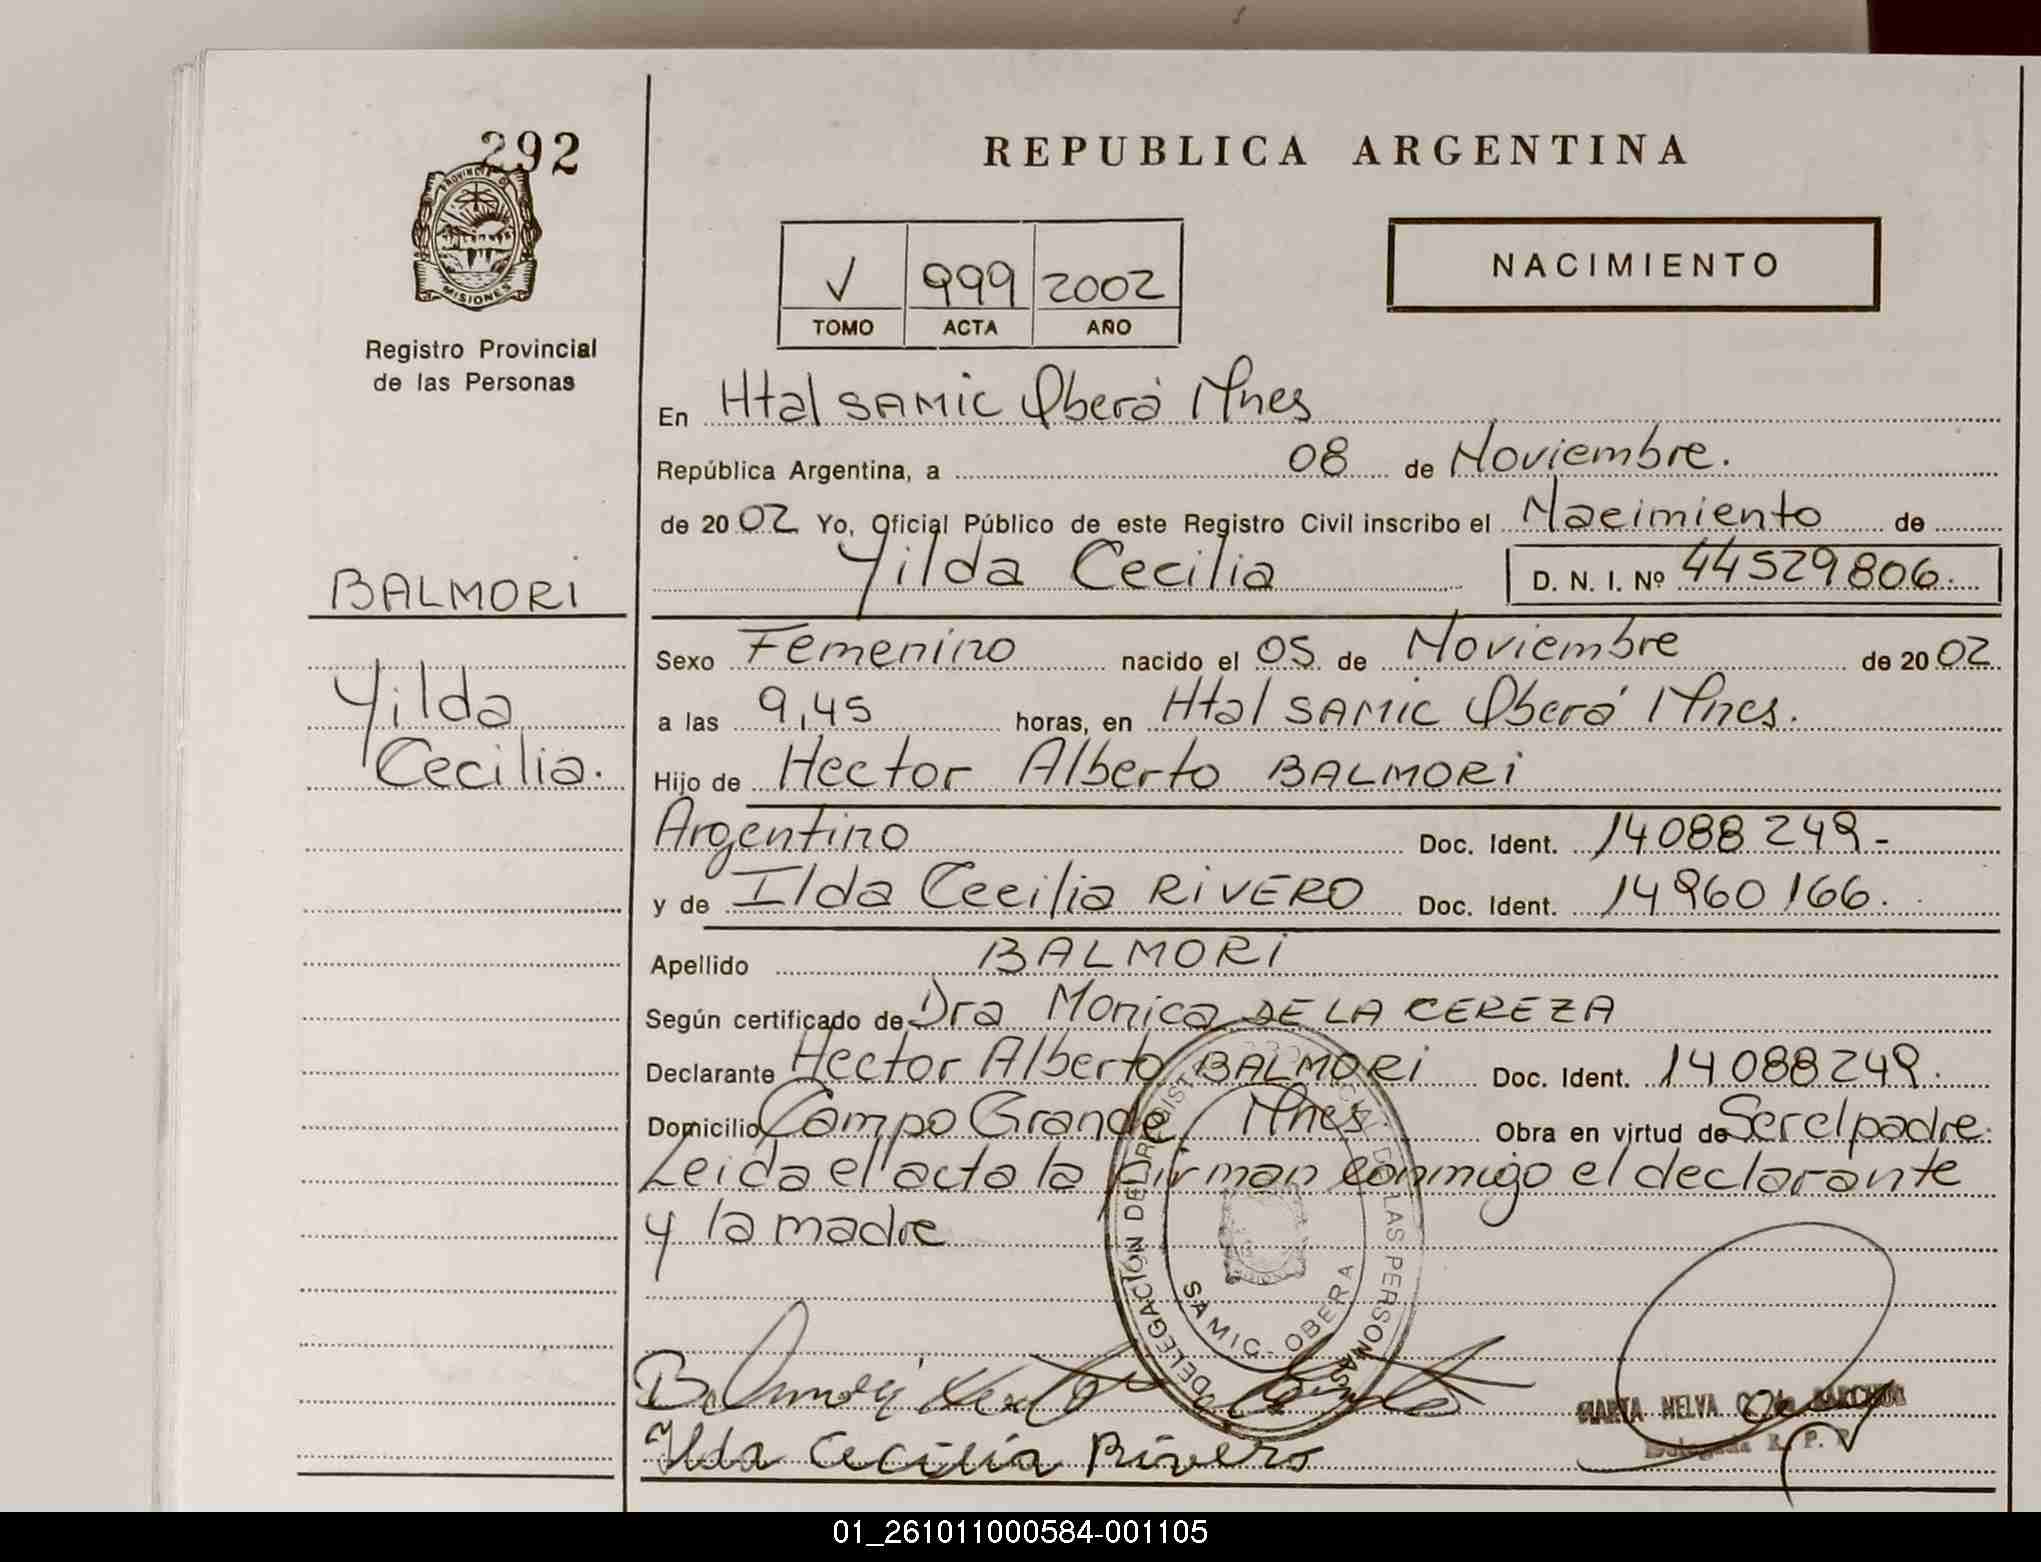 292
PROVINCIA DE
MISIONES
Registro Provincial
de las Personas
BALMORI
Yilda
Cecilia.
REPUBLICA ARGENTINA
V 999 2002
TOMO ACTA AÑO
NACIMIENTO
En Htal SAMIC Oberá Mnes
República Argentina, a 08 de Noviembre.
de 2002 Yo, Oficial Público de este Registro Civil inscribo el Nacimiento de
Yilda Cecilia D. N. I. Nº 44529806.
Sexo Femenino nacido el 05 de Noviembre de 2002
a las 9,45 horas, en Htal SAMIC Oberá Mnes.
Hijo de Hector Alberto BALMORI
Argentino Doc. Ident. 14088249-
y de Ilda Cecilia RIVERO Doc. Ident. 14960166.
Apellido BALMORI
Según certificado de Dra Monica DE LA CEREZA
Declarante Hector Alberto BALMORI Doc. Ident. 14088249.
Domicilio Campo Grande Mnes. Obra en virtud de Ser el padre.
Leida el acta la firman conmigo el declarante
y la madre
DELEGACIÓN DEL REGISTRO PROVINCIAL DE LAS PERSONAS
SAMIC - OBERA
Ilda Cecilia Rivero
MARTA NELVA
Delegada R. P. P.
01_261011000584-001105